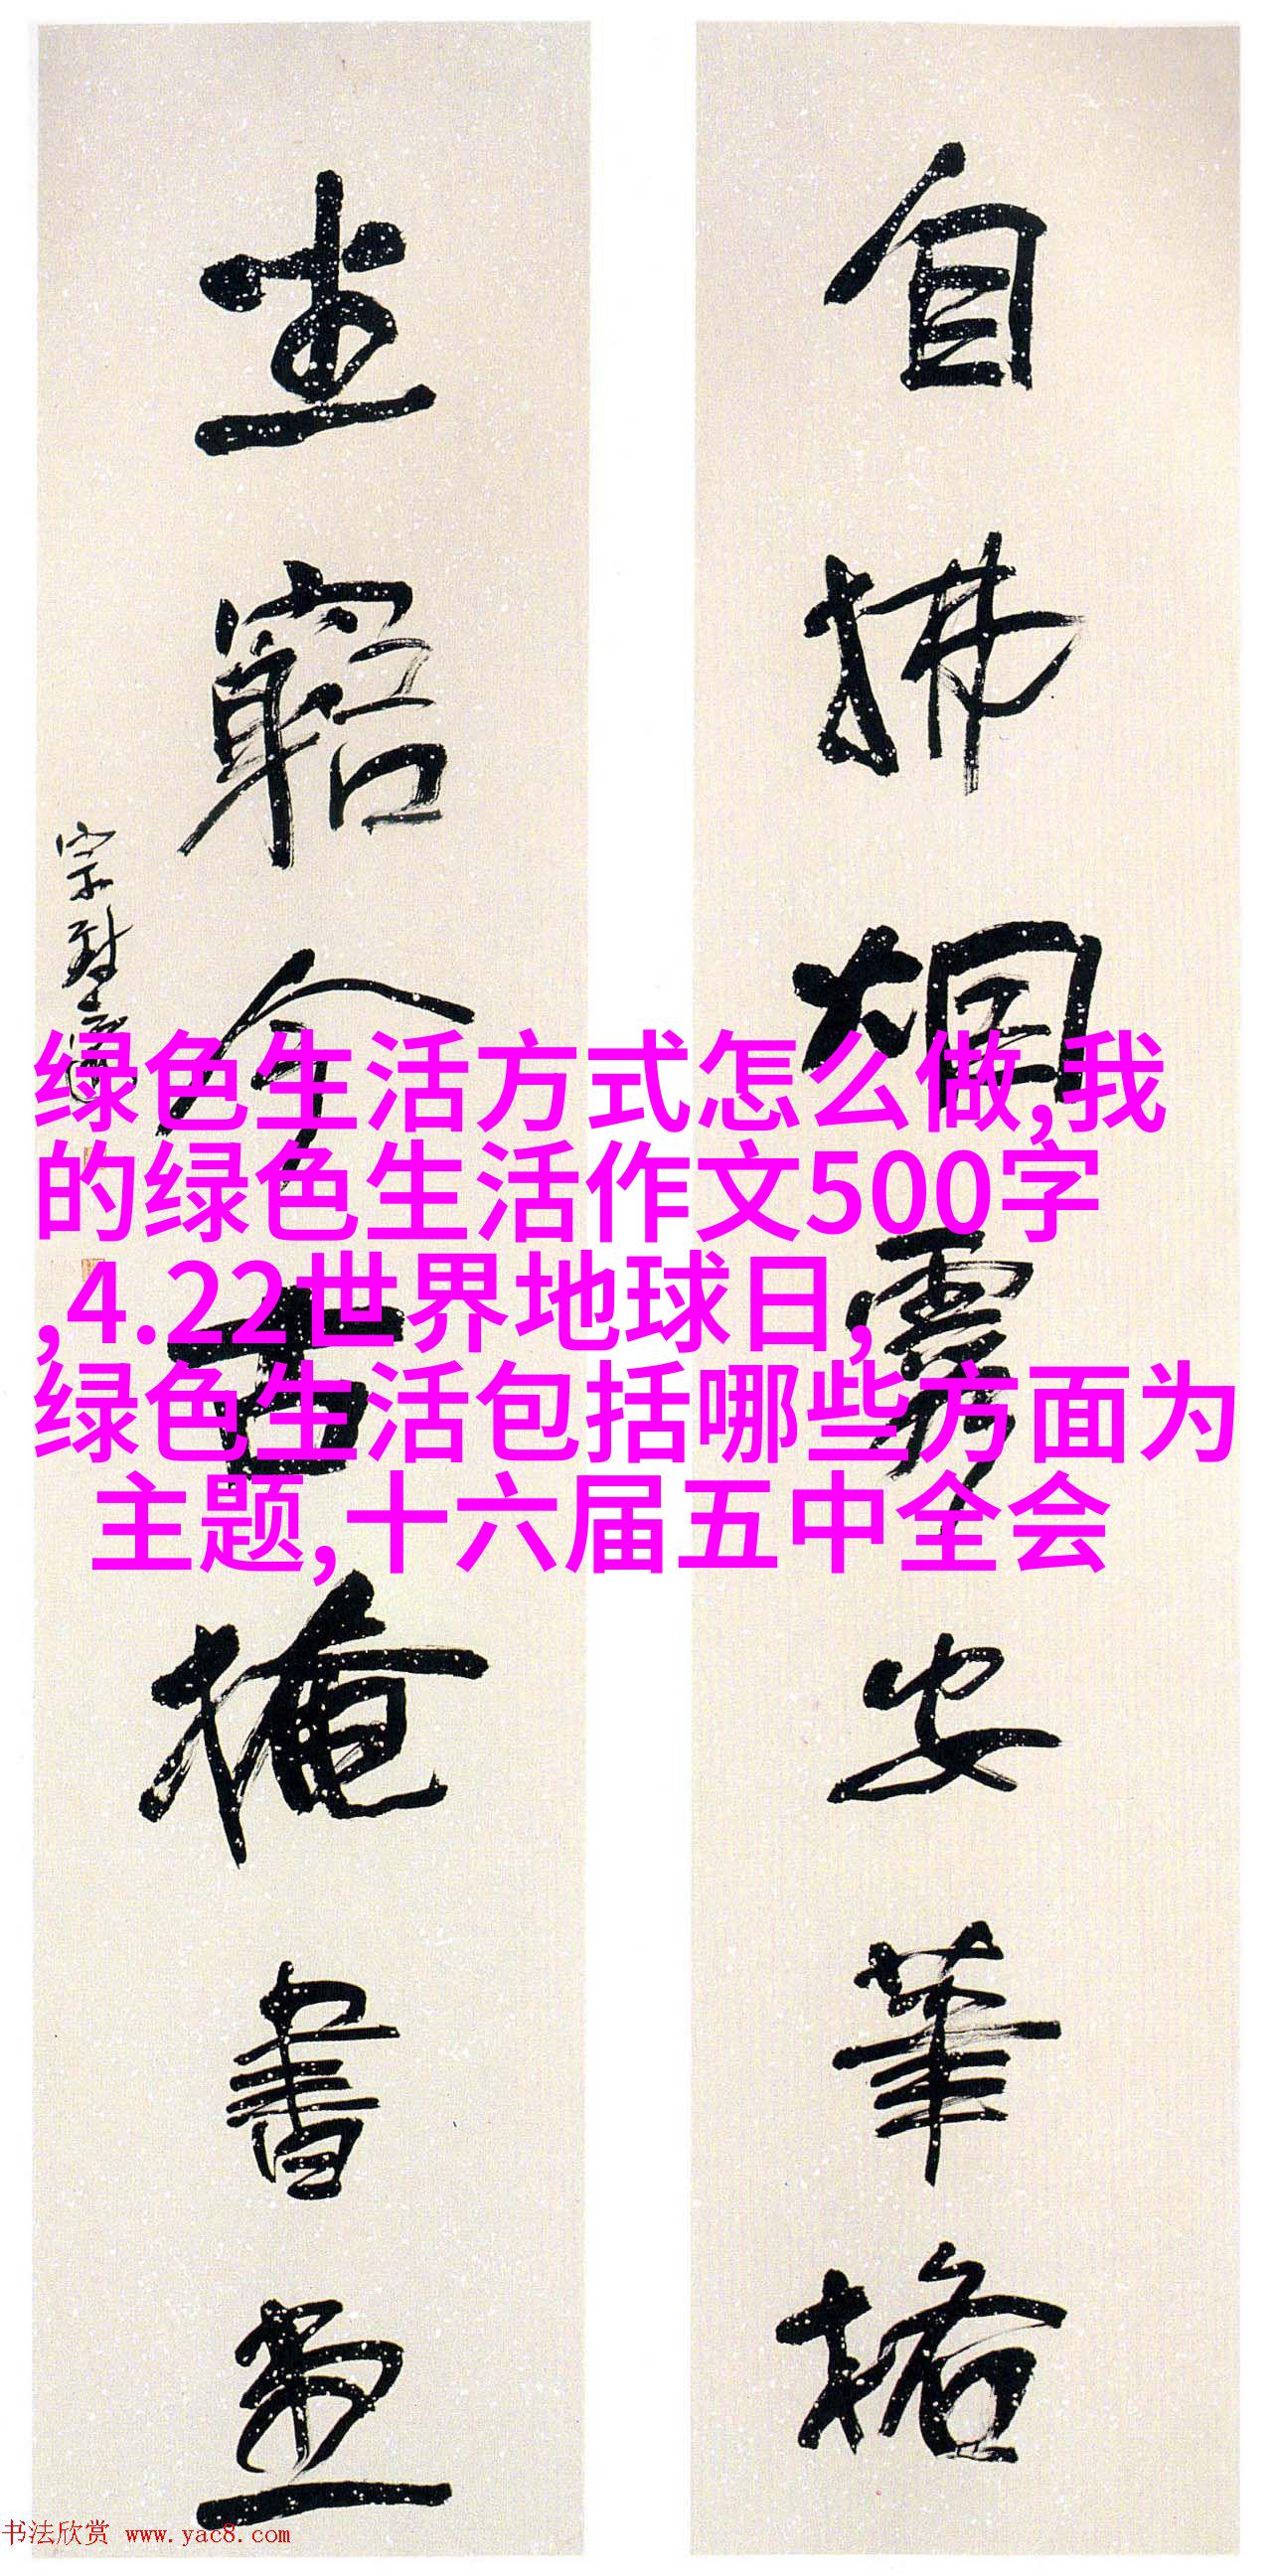 自拂烟雾安筆格
坐窮今古掩書堂
绿色生活方式怎么做,我
的绿色生活作文500字
,4.22世界地球日,
绿色生活包括哪些方面为
主题,十六届五中全会
书法欣赏 www.yac8.com